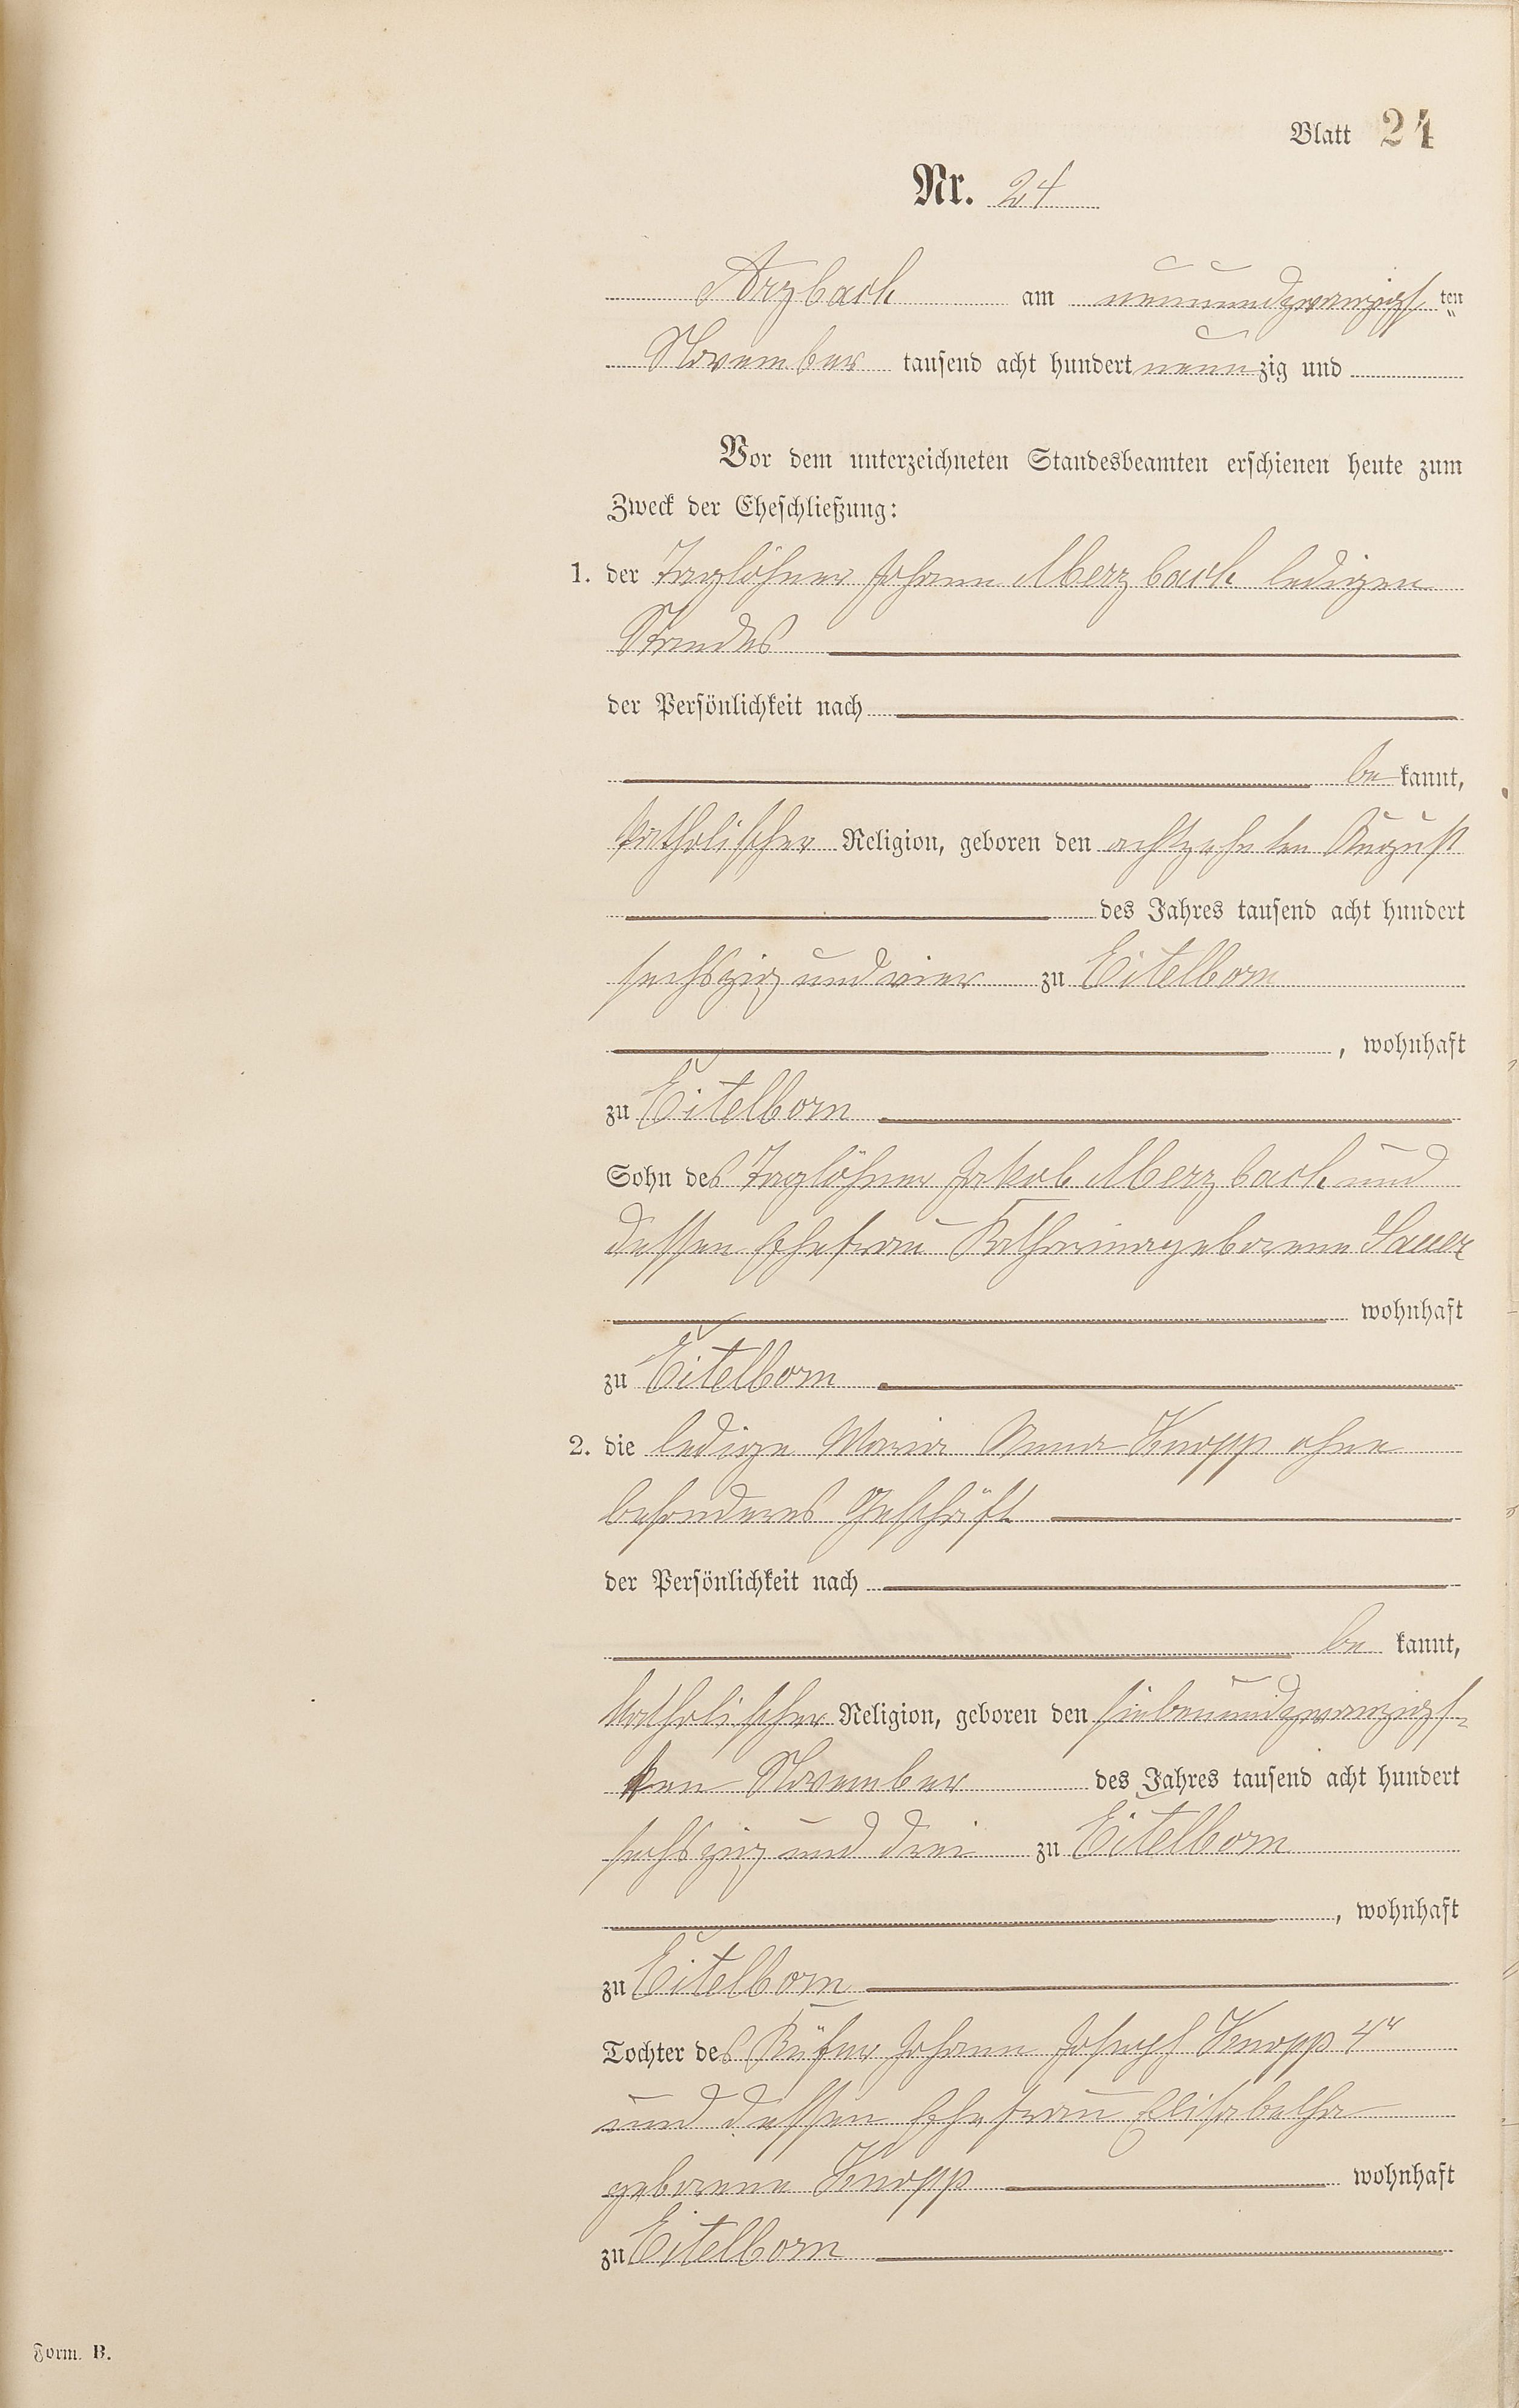 Blatt 24
Nr. 24
Arzbach am neunundzwanzigst ten
November tausend acht hundert neunzig und
Vor dem unterzeichneten Standesbeamten erschienen heute zum
Zweck der Eheschließung:
1. der Taglöhner Johann Merzbach ledigen
Standes
der Persönlichkeit nach
be kannt,
katholischer Religion, geboren den achtzehnten August
des Jahres tausend acht hundert
sechszig und vier zu Eitelborn
, wohnhaft
zu Eitelborn
Sohn des Taglöhner Jakob Merzbach und
dessen Ehefrau Katharina geborene Sauer
wohnhaft
zu Eitelborn
2. die ledige Maria Anna Knopp ohne
besonderes Geschäft
der Persönlichkeit nach
be kannt,
katholischer Religion, geboren den siebenundzwanzigs-
ten November des Jahres tausend acht hundert
sechszig und drei zu Eitelborn
, wohnhaft
zu Eitelborn
Tochter des Küfer Johann Joseph Knopp 4r
und dessen Ehefrau Elisabetha
geborene Knopp wohnhaft
zu Eitelborn
Form. B.